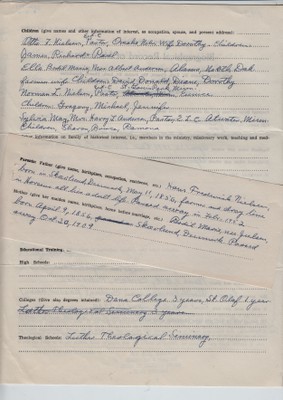 Children (give names and other information of interest, as occupation, spouse, and present address):
Otto F. Nielsen, Pastor, Omaha Nebr. Wife Dorothy - Children
James, Richard & Paul
Ella Bodil Marie, Mrs Albert Anderson, Adams, No. Dak
farmers wife Children David, Donald, Duane, Dorothy
Norman L. Nielsen, Pastor, Eunice
Children Gregory, Michael, Jennifer
Sylvia May, Mrs. Harry L. Andersen, Pastor E L C Atwater, Minn
Children, Sharon, Bonnie, Ramona
Parents: Father (give name, birthplace, occupation, marriage, etc.) Hans Frederick Nielsen,
born in Denmark, May 11, 1856, farmer and day
in all his adult life. Passed away in Feb. 1952
Mother (give her maiden name, birthplace, home before marriage, etc.) Bodil Marie nee Jensen
born April 9, 1856, Denmark Passed
away Oct 30, 1909
Educational Training
High School:
Colleges (Give also degrees attained): Dana College 3 years, St. Olaf 1 year
Luther Theological Seminary 3 years
Theological Schools: Luther Theological Seminary